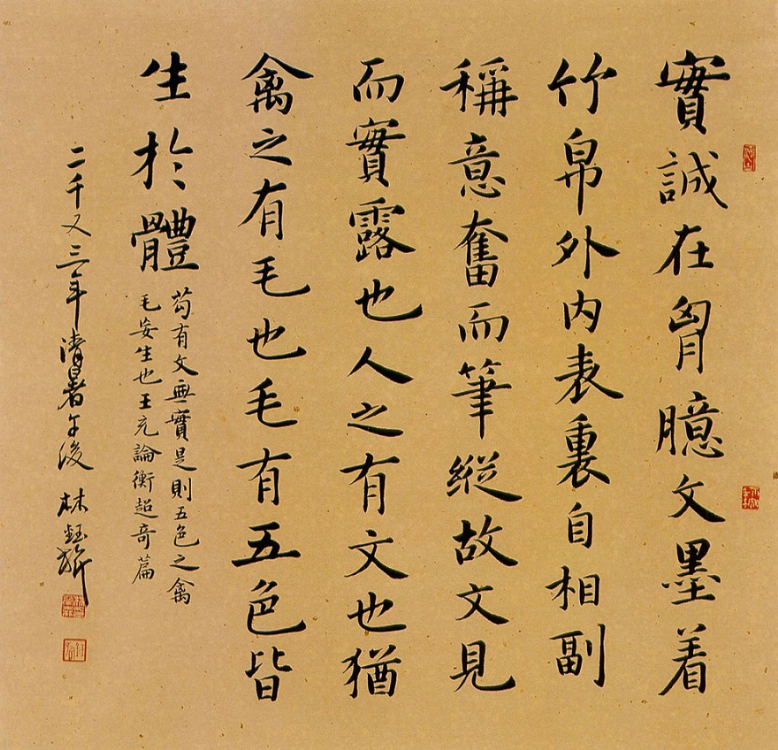 實誠在胷臆文墨着
竹帛外内表裏自相副
稱意奮而筆縱故文見
而實露也人之有文也猶
禽之有毛也毛有五色皆
生於體
苟有文無實是則五色之禽
毛妄生也王充論衡超奇篇
二千又三年清暑午後 林鈺